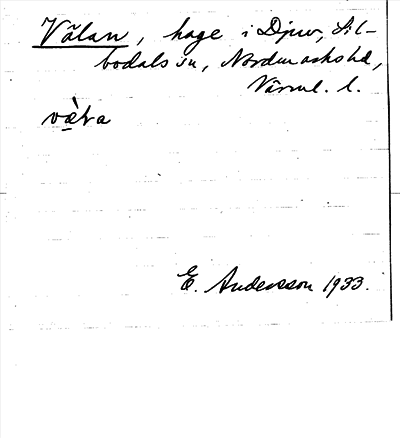 Vålan, hage i Djuv, Sil-
bodals sn, Nordmarks hd,
Värml. l.
væ̀ɫa
E. Andersson 1933.